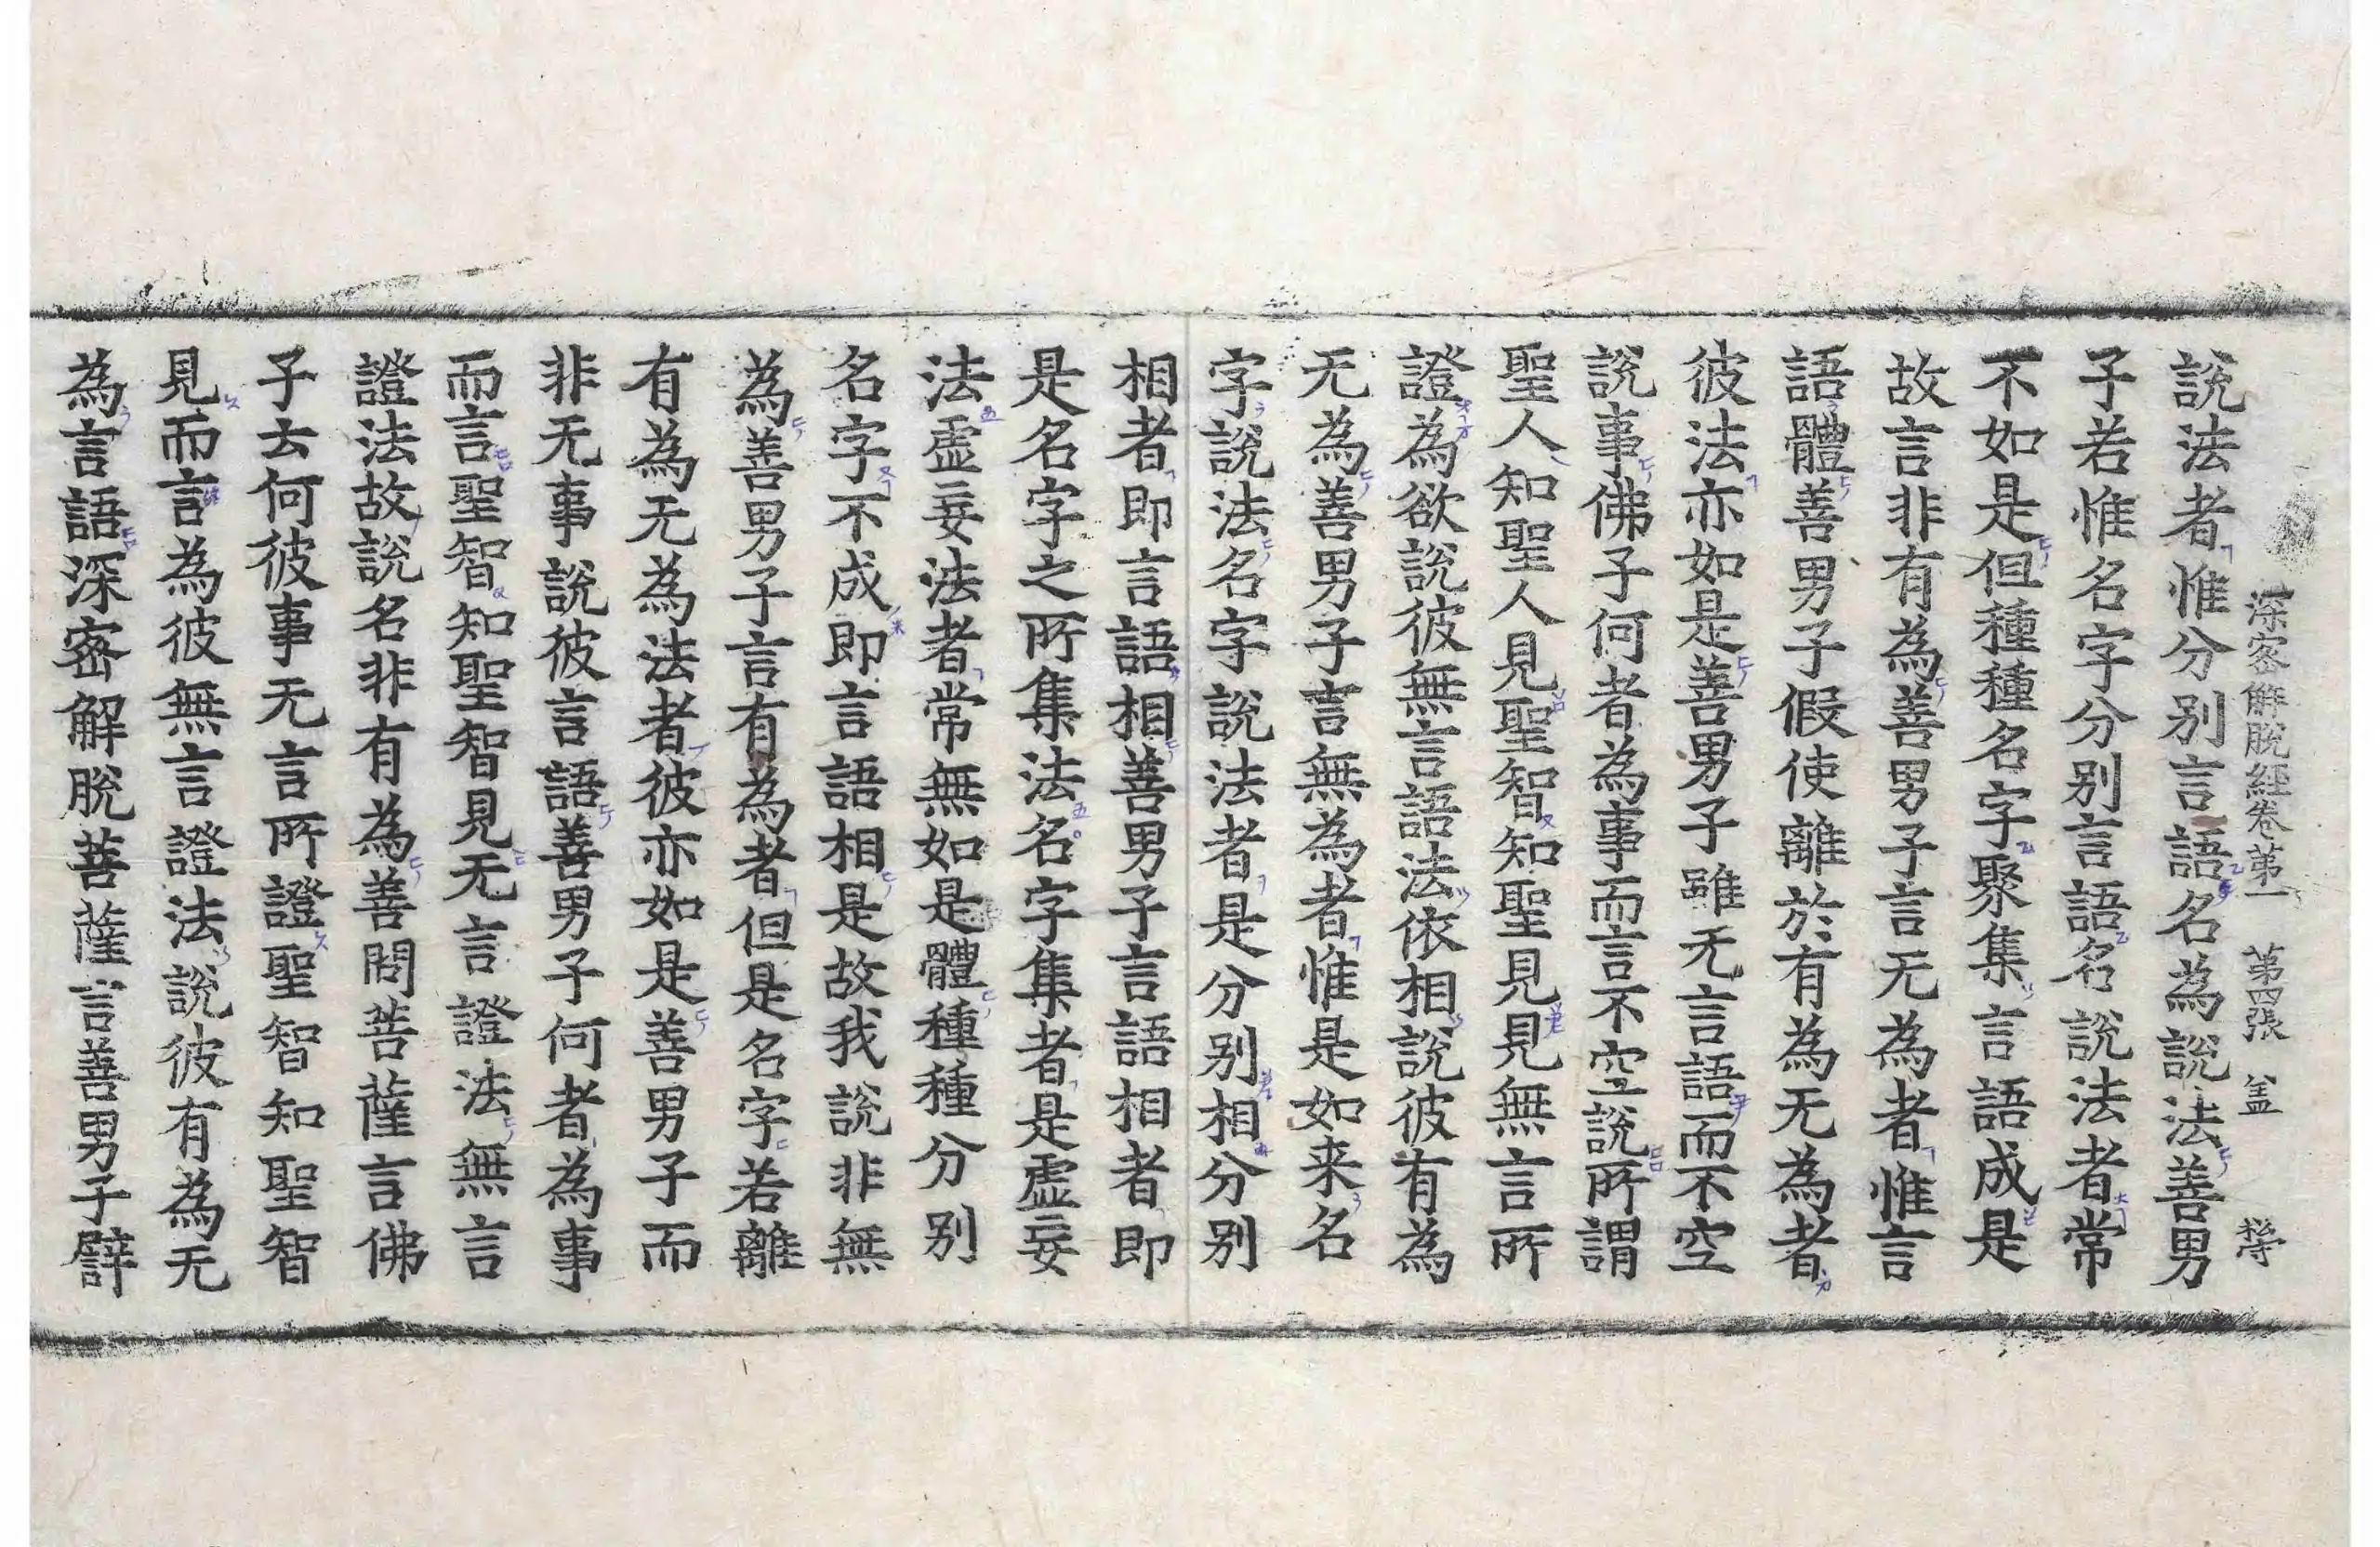 深密解脫經卷第一　第四張　盖
說法者惟分別言語名為說法善男
子若惟名字分別言語名說法者常
不如是但種種名字聚集言語成是
故言非有為善男子言无為者惟言
語體善男子假使離於有為无為者
彼法亦如是善男子雖无言語而不空
說事佛子何者為事而言不空說所謂
聖人知聖人見聖智知聖見見無言所
證為欲說彼無言語法依相說彼有為
无為善男子言無為者惟是如来名
字說法名字說法者是分別相分別
相者即言語相善男子言語相者即
是名字之所集法名字集者是虛妄
法虛妄法者常無如是體種種分別
名字不成即言語相是故我說非無
為善男子言有為者但是名字若離
有為无為法者彼亦如是善男子而
非无事說彼言語善男子何者為事
而言聖智知聖智見无言證法無言
證法故說名非有為善問菩薩言佛
子云何彼事无言所證聖智知聖智
見而言為彼無言證法說彼有為无
為言語深密解脫菩薩言善男子辟